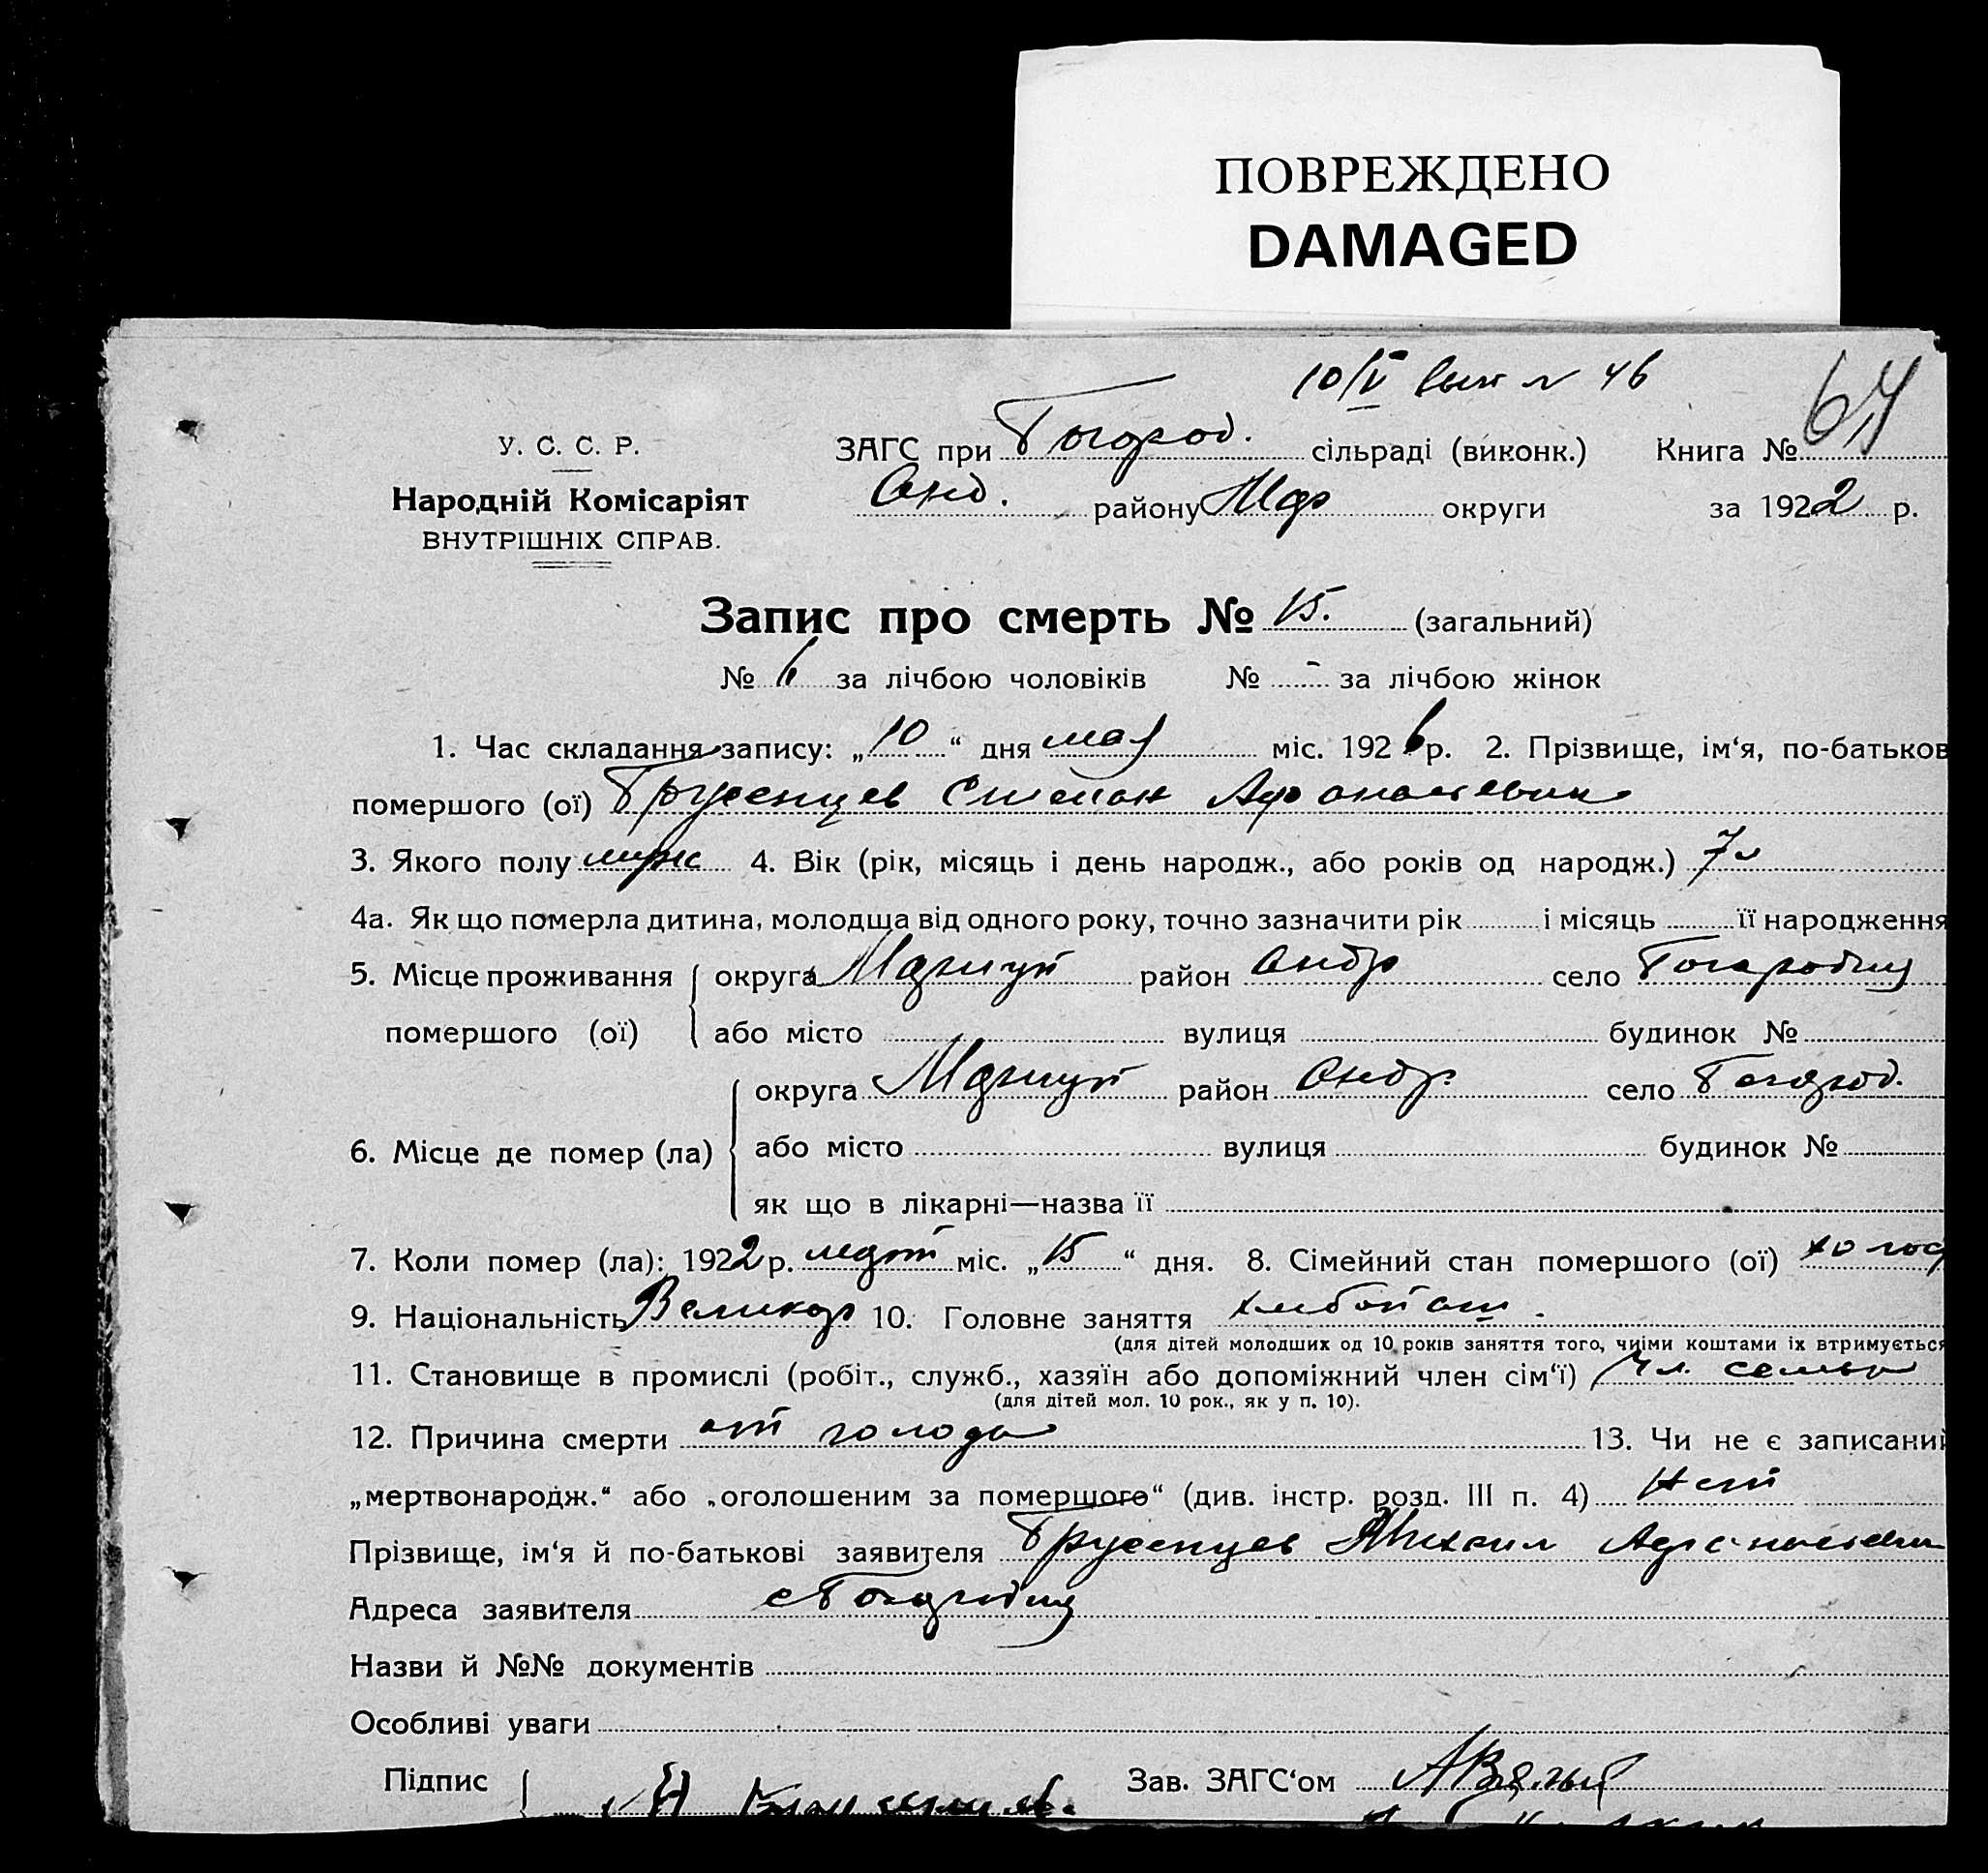 ПОВРЕЖДЕНО
DAMAGED
10/V вып № 46
64
У. С. С. Р.
Народній Комісаріят
ВНУТРІШНІХ СПРАВ.
ЗАГС при Богород. сільраді (виконк.) Книга №
Анд. району Мар округи за 1922 р.
Запис про смерть № 15. (загальний)
№ 6 за лічбою чоловіків № - за лічбою жінок
1. Час складання запису: „10“ дня мая міс. 1926 р. 2. Прізвище, ім‘я, по-батьков
помершого (ої) Трусенцев Степан Афанасьевич
3. Якого полу муж 4. Вік (рік, місяць і день народж., або років од народж.) 7 л
4а. Як що померла дитина, молодща від одного року, точно зазначити рік і місяць її народження
5. Місце проживання округа Мариуп район Андр село
помершого (ої) або місто вулиця будинок №
округа Мариуп район Андр. село Богород.
6. Місце де помер (ла) або місто вулиця будинок №
як що в лікарні—назва її
7. Коли помер (ла): 1922 р. март міс. „15“ дня. 8. Сімейний стан помершого (ої) холос
9. Національність Великор 10. Головне заняття хлебопаш.
(для дітей молодших од 10 років заняття того, чиїми коштами їх втримується
11. Становище в промислі (робіт., служб., хазяїн або допоміжний член сім‘ї) чл. семьи
(для дітей мол. 10 рок., як у п. 10).
12. Причина смерти от голода 13. Чи не є записаний
„мертвонародж.“ або „оголошеним за помершого“ (див. інстр. розд. III п. 4) Нет
Прізвище, ім‘я й по-батькові заявителя Трусенцев Михаил Афанасьевич
Адреса заявителя
Назви й №№ документів
Особливі уваги
Підпис Зав. ЗАГС‘ом